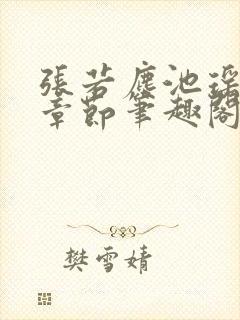 張若塵池瑤
章節筆趣閣
樊雪婧